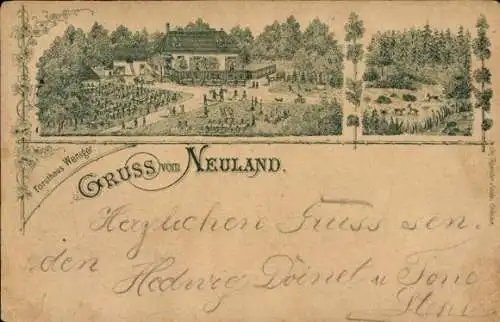 Forsthaus Weniger
GRUSS vom NEULAND.
Herzlichen Gruss sen-
den Hedwig Doinet u Toni